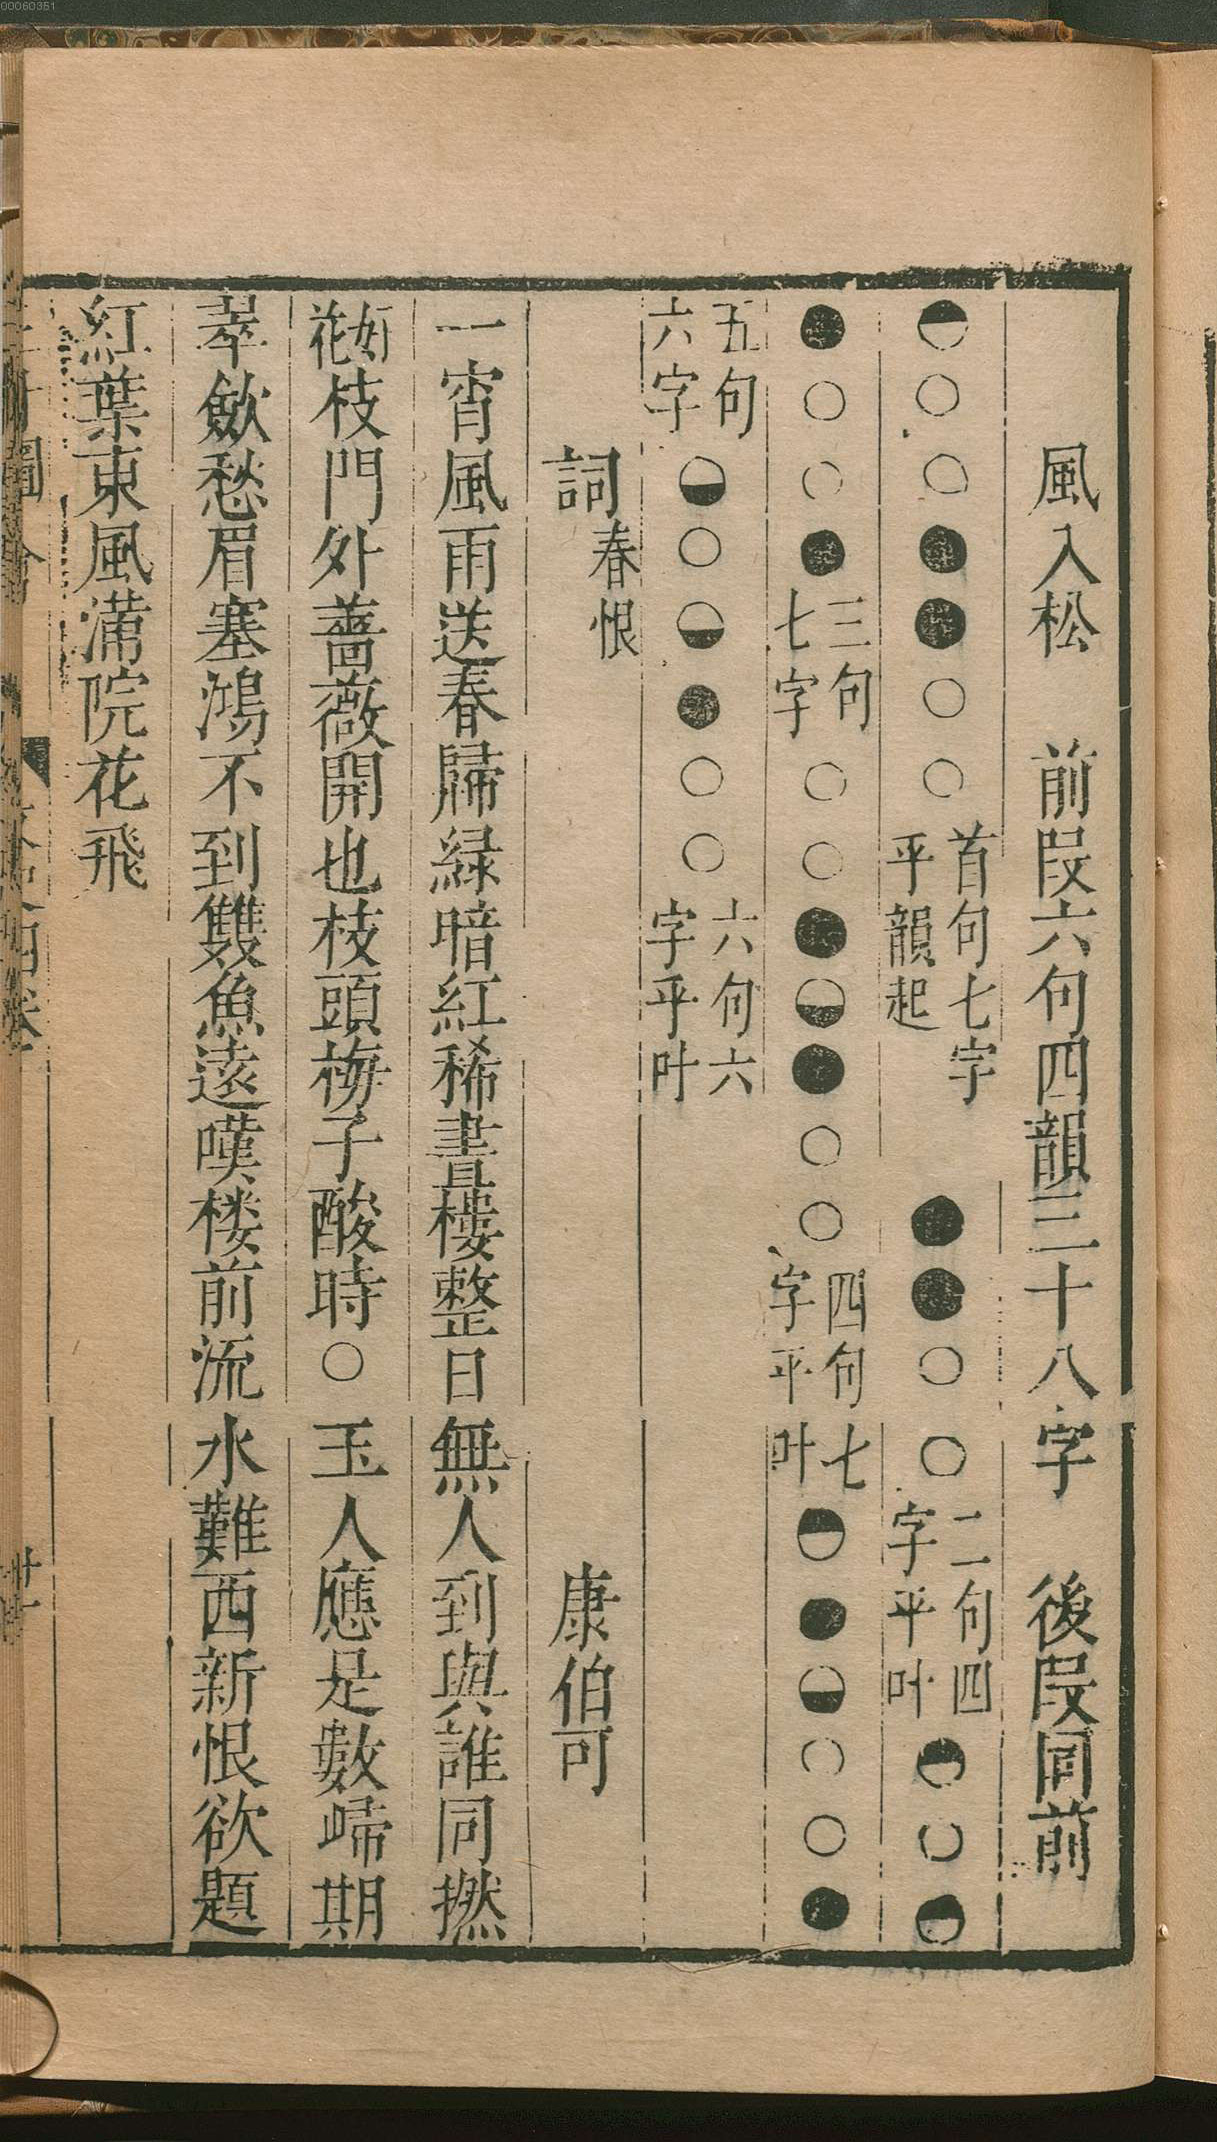 00060351
風入松　前段六句四韻三十八字　後段同前
◓○○●●○○首句七字平韻起　●●○○二句四字平叶◓○◓
●○○●三句七字○○●◒●○○四句七字平叶◓●◒○○●
五句六字◒○◒●○○六句六字平叶
詞春恨　康伯可
一宵風雨送春歸緑暗紅稀晝樓整日無人到與誰同撚
花枝門外薔薇開也枝頭梅子酸時○玉人應是數歸期
翠歛愁眉塞鴻不到雙魚遠嘆楼前流水難西新恨欲題
紅葉東風滿院花飛